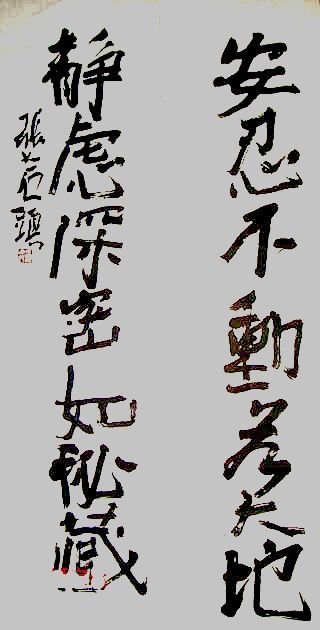 安忍不動若大地
靜慮深密如秘藏
張大石頭